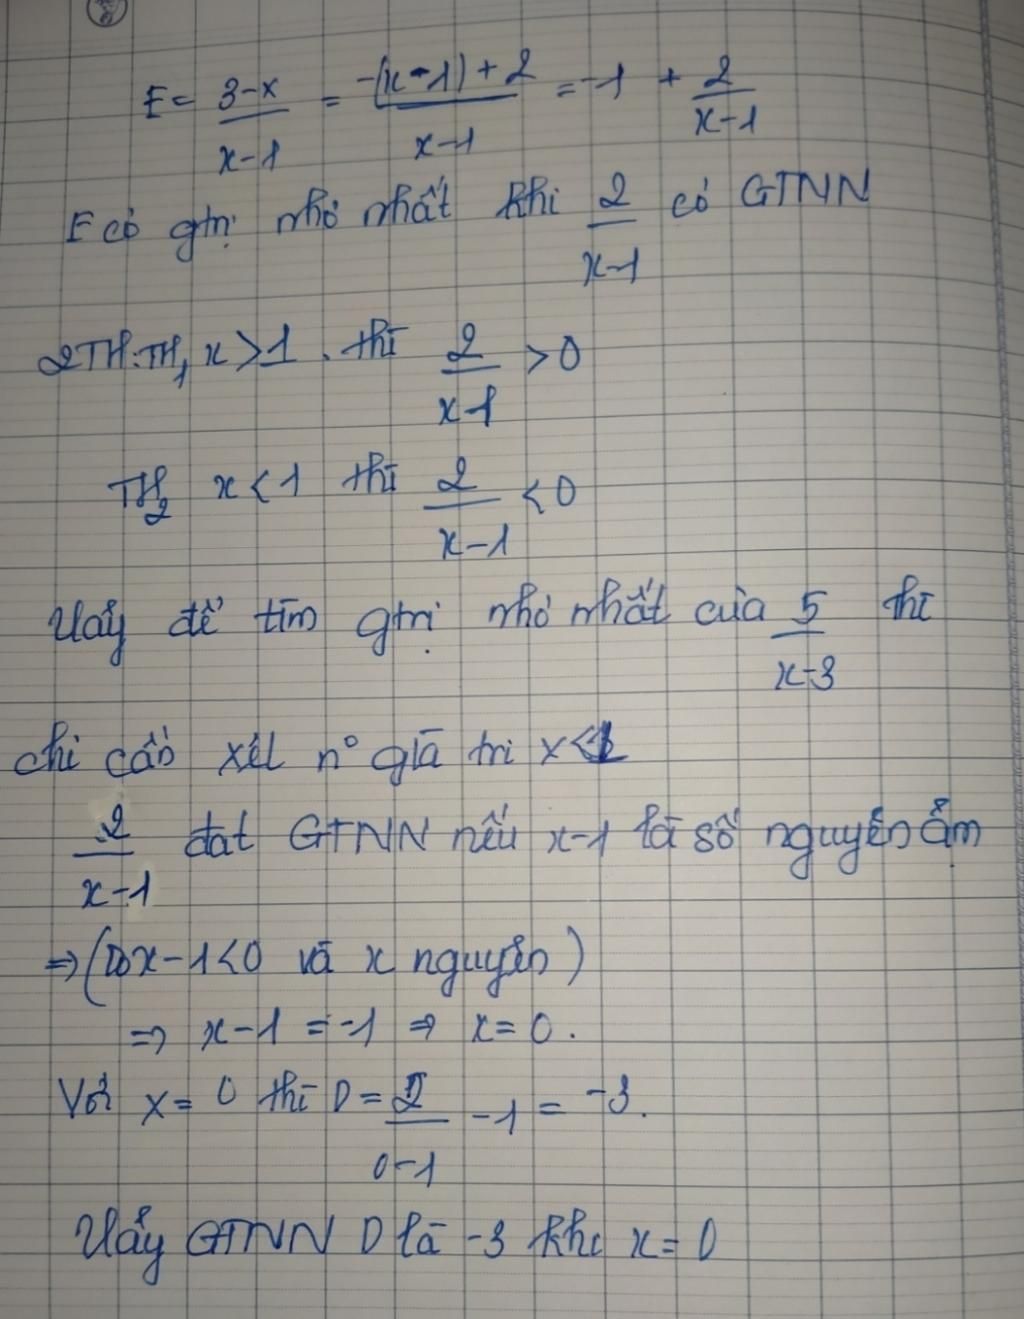 E = 3-x / x-1 = -(x-1)+2 / x-1 = -1 + 2 / x-1
E có gtrị nhỏ nhất khi 2 / x-1 có GTNN
2TH: TH1 x > 1. thì 2 / x-1 > 0
TH2 x < 1 thì 2 / x-1 < 0
Vậy để tìm gtrị nhỏ nhất của 5 / x-3 thì
chỉ cần xét n° giá trị x < 1
2 / x-1 đạt GTNN nếu x-1 là số nguyên âm
⇒ (Do x-1<0 và x nguyên)
⇒ x-1 = -1 ⇒ x = 0.
Với x = 0 thì D = 2 / 0-1 - 1 = -3.
Vậy GTNN D là -3 khi x = 0